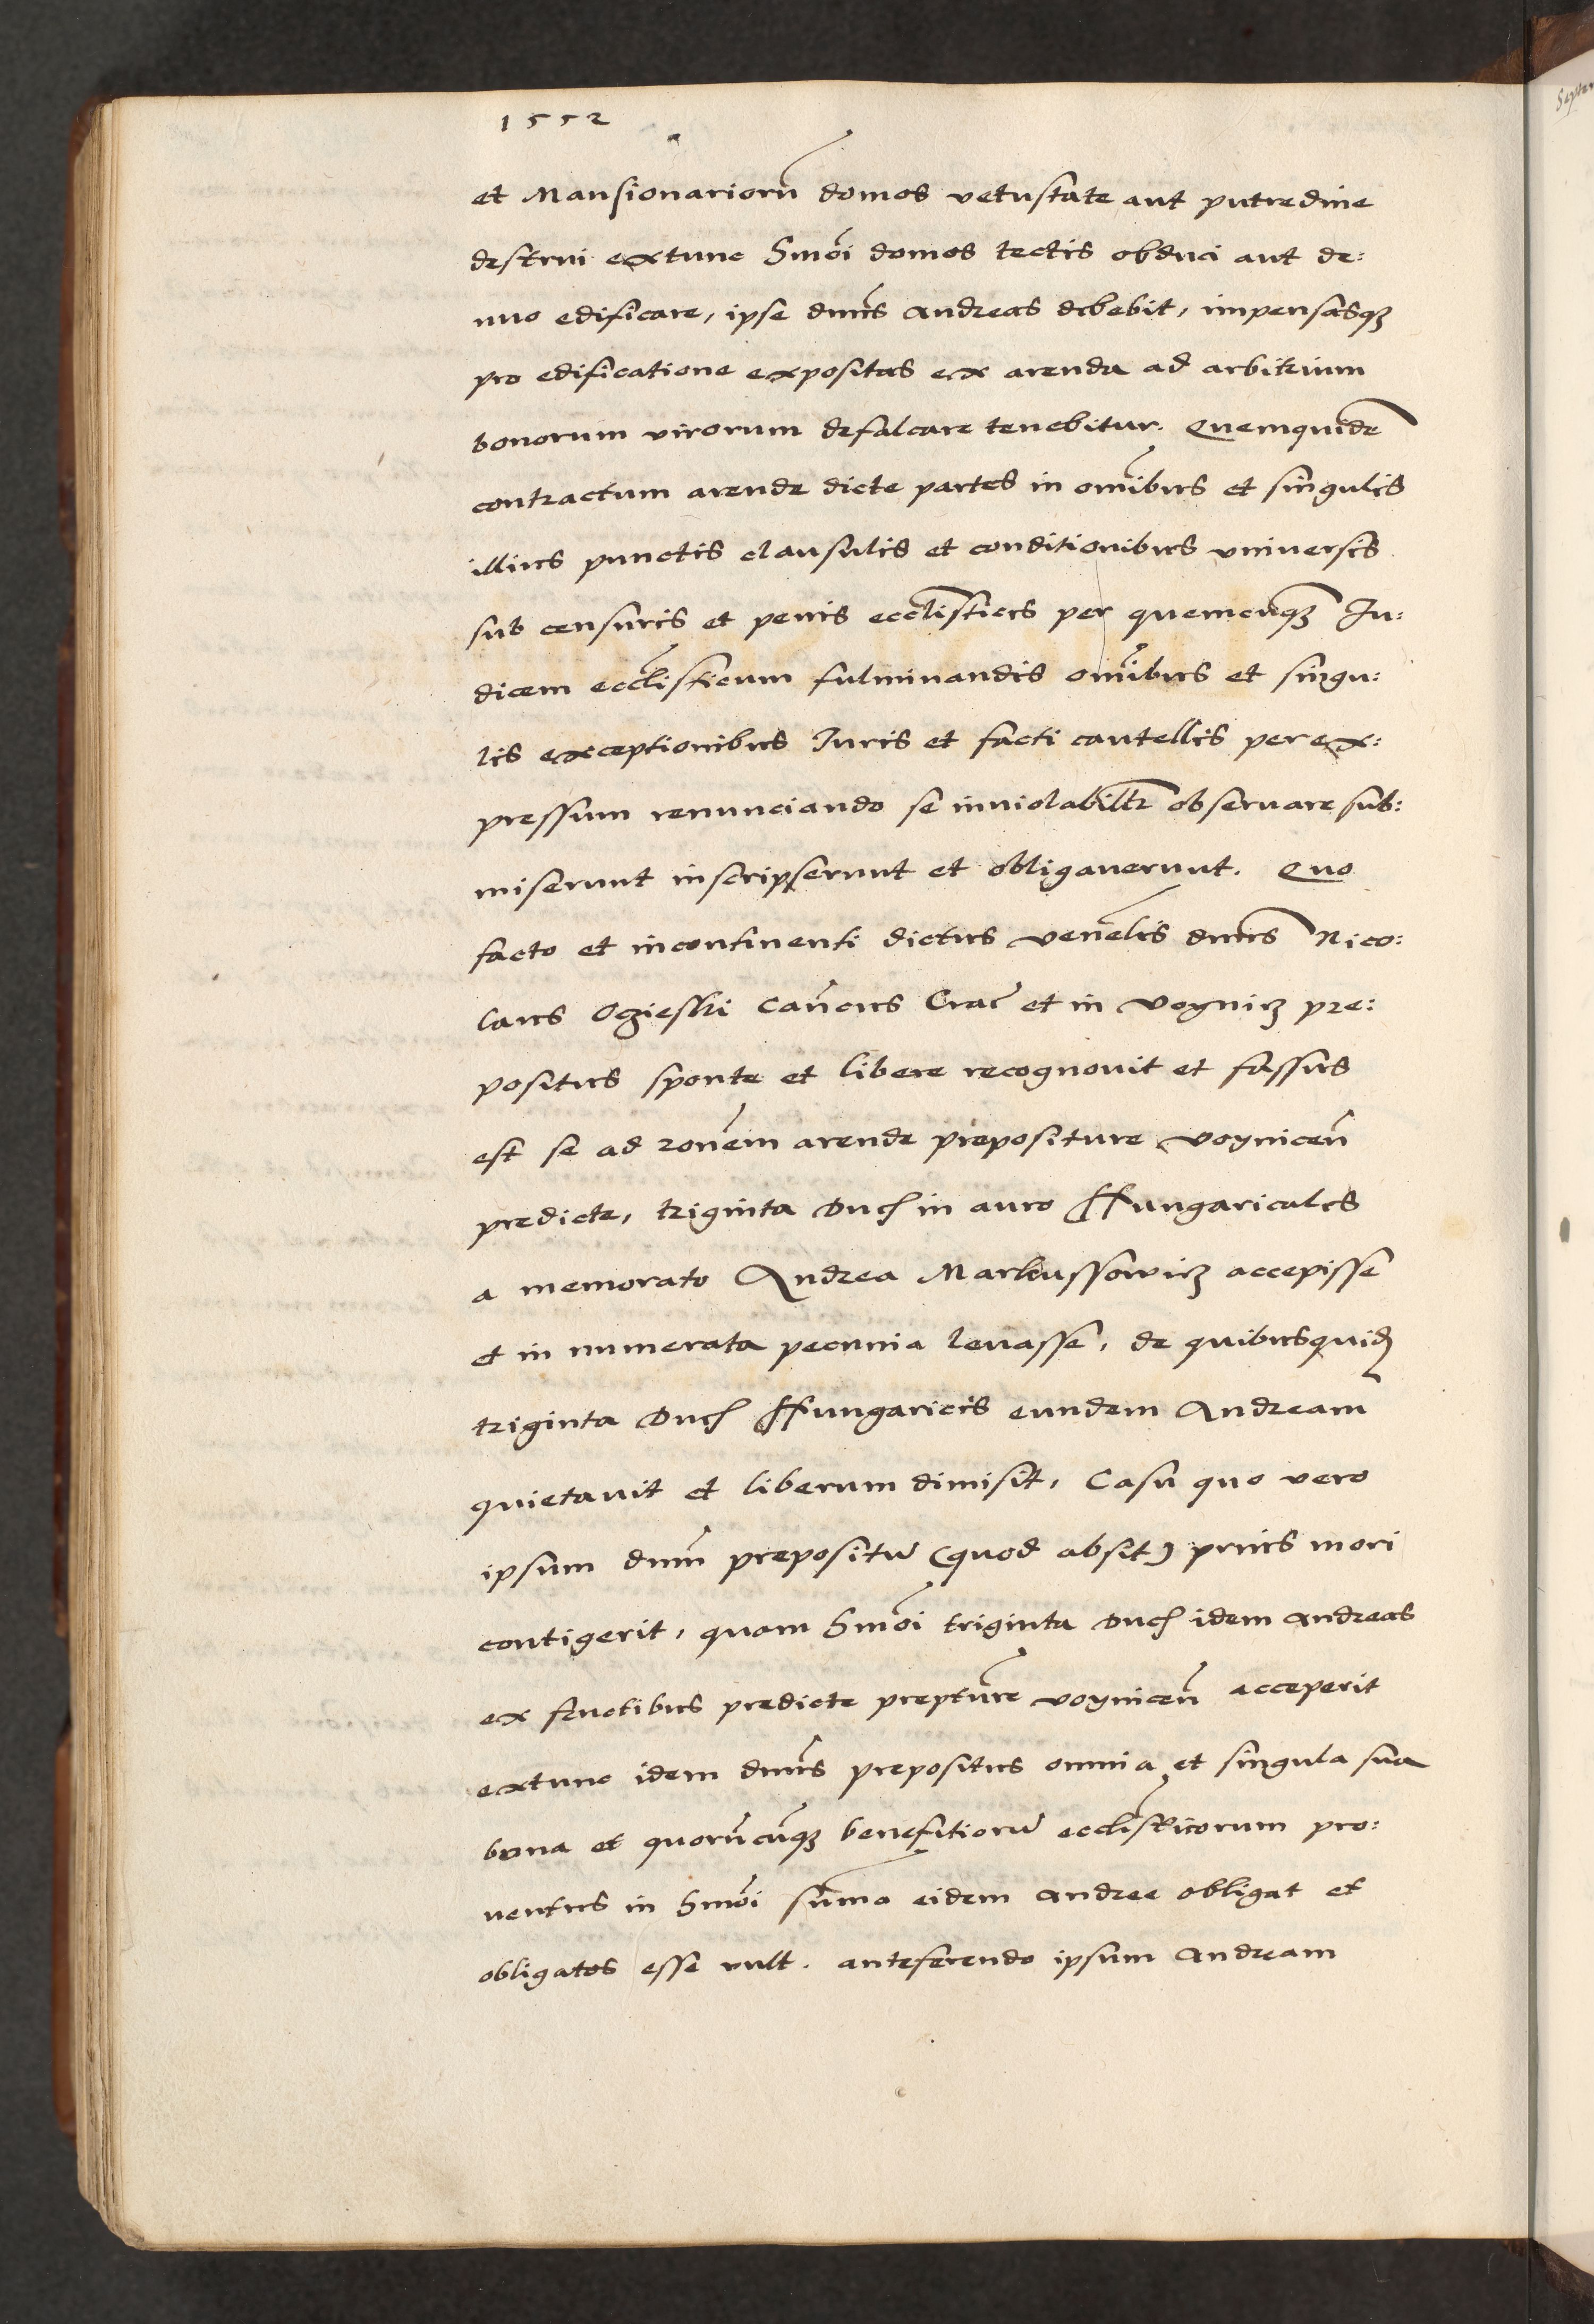 1552
et Mansionariorū domos vetustate aut putredine
destrui extunc Hmōi domos tectis obduci aut de:
nuo edificare, ipse dnūs Andreas debebit, impensasqȝ
pro edificatione expositas ex arenda ad arbitrium
bonorum virorum defalcare tenebitur. Quemquidē
contractum arende dicte partes in om̄ibus et singulis
illius punctis clausulis et conditionibus vniversis
sub censuris et penis ecclīsticis per quemcūqȝ Iu:
dicem ecclīsticum fulminandis om̄ibus et singu:
lis exceptionibus Iuris et facti cautellis per ex:
pressum renunciando se inuiolabilr̄ obseruare sub:
miserunt inscripserunt et obligauerunt. Quo
facto et incontinenti dictus venēlis dnūs Nico:
laus Ogieski Canōcus Crac̄ et in Voynicȝ pre:
positus sponte et libere recognouit et fassus
est se ad ronēm arende prepositure Voynicen̄
predicte, triginta Duc in auro Hungaricales
a memorato Andrea Markussowicȝ accepisse
et in numerata pecunia leuasse, de quibusquid
triginta Duc Hungaricis eundem Andream
quietauit et liberum dimisit, Casu quo vero
ipsum dnūm prepositū (quod absit) prius mori
contigerit, quam Hmōi triginta Duc idem Andreas
ex fructibus predicte preptūre Voynicen̄ acceperit
extunc idem dnūs prepositus omnia et singula sua
bona et quorūcūqȝ benefitiorū ecclīsticorum pro:
uentus in Hmōi sūma eidem Andree obligat et
obligatos esse vult. anteferendo ipsum Andream